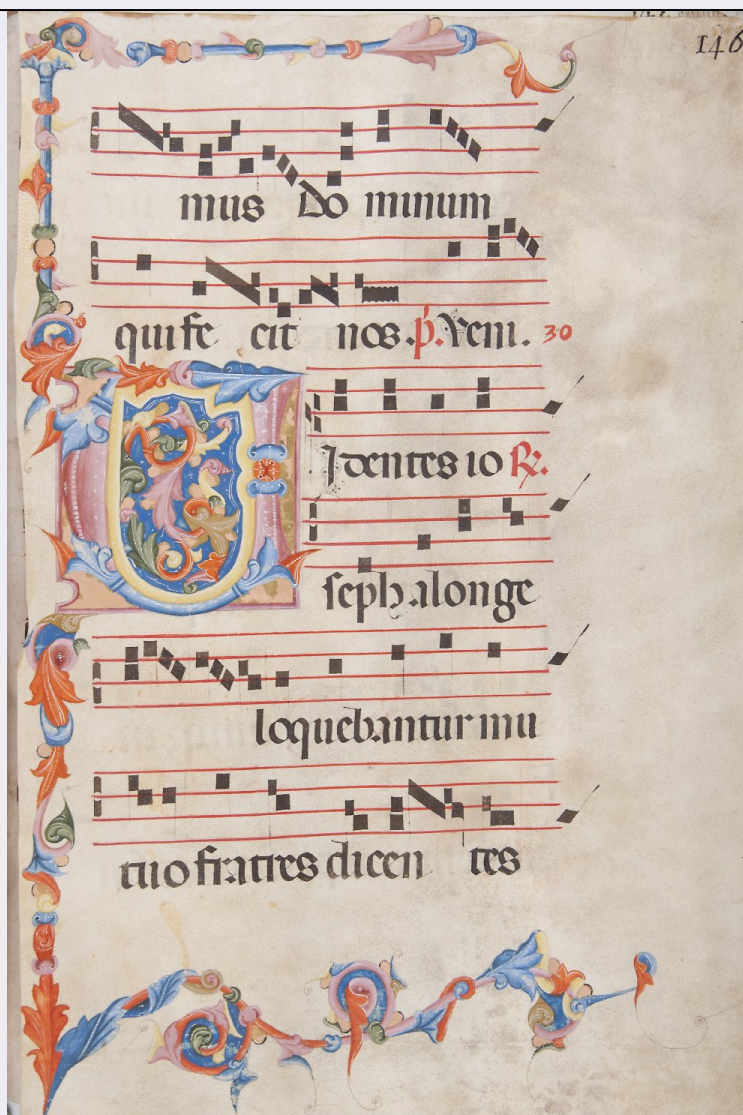 146
mus Do minum
qui fe cit nos. p. Veni. 30
Videntes io R.
seph a longe
loquebantur mu
tuo fratres dicen tes